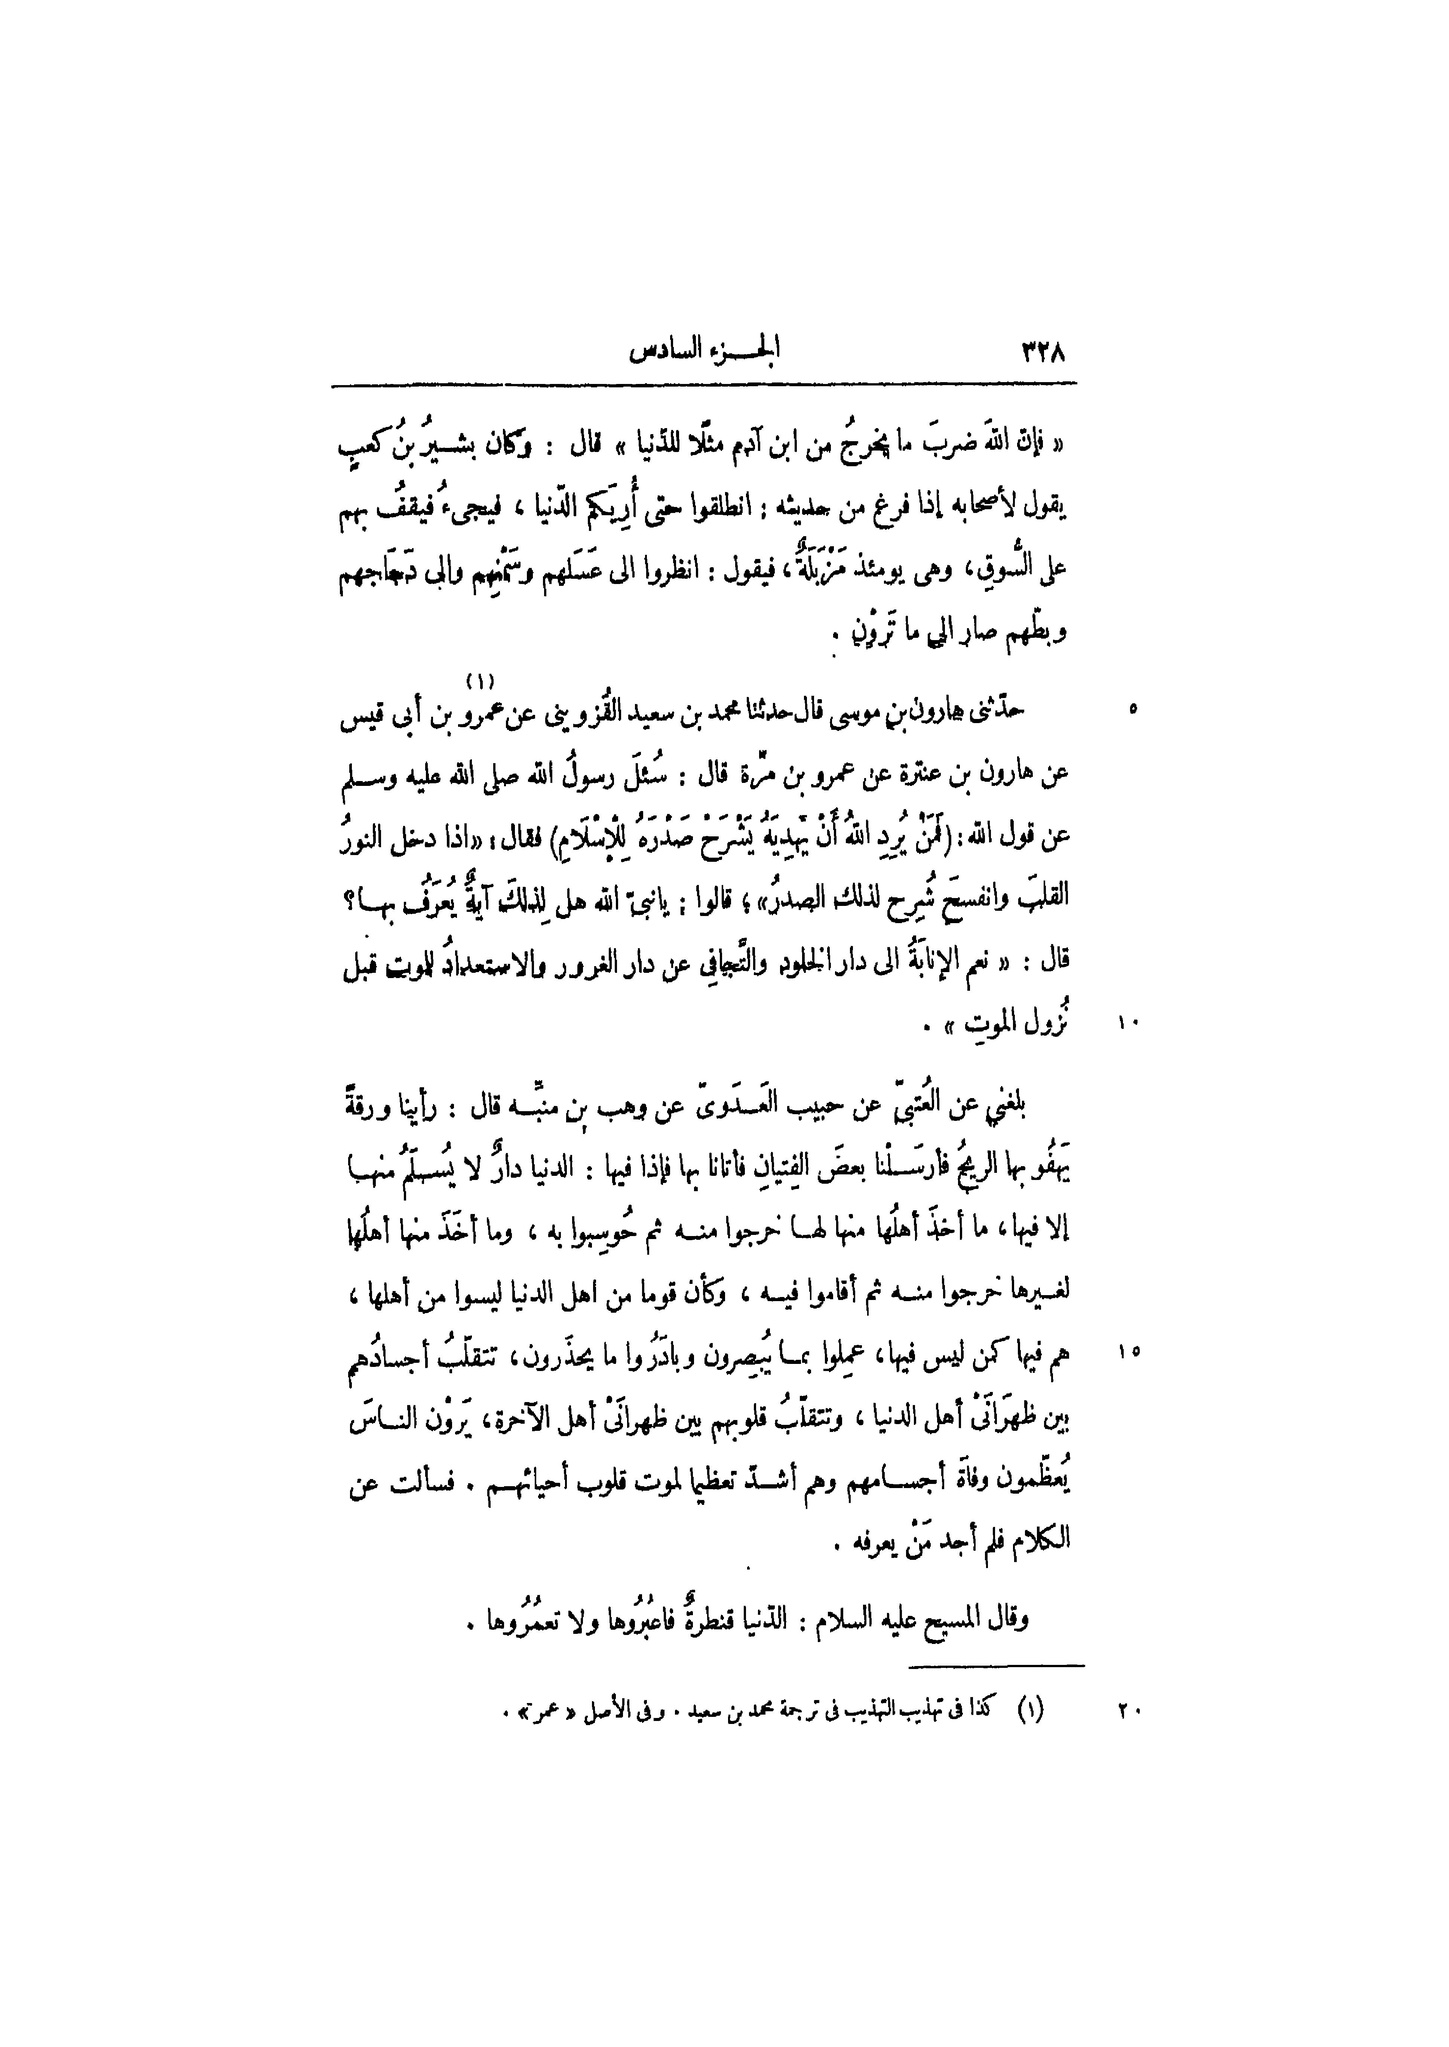 ٣٢٨ الجـزء السادس
« فإن اللهَ ضربَ ما يخرجُ من ابن آدم مثلًا للدّنيا » قال : وكان بشـيرُ بنُ كعبٍ
يقول لأصحابه إذا فرغ من حديثه : انطلقوا حتى أُرِيَكم الدّنيا ، فيجىءُ فيقفُ بهم
على السُّوقِ، وهى يومئذ مَزْبَلَةٌ، فيقول : انظروا الى عَسَلهم وسَمْنِهم والى دَجَاجهم
وبطّهم صار الى ما تَرَوْن .
٥ حدّثنى هارون بن موسى قال حدثنا محمد بن سعيد القَزوينى عن عمرو (١) بن أبى قيس
عن هارون بن عنترة عن عمرو بن مرّة قال : سُئلَ رسولُ الله صلى الله عليه وسـلم
عن قول الله : (فَمَنْ يُرِدِ اللهُ أَنْ يَهدِيَهُ يَشْرَحْ صَدْرَهُ لِلْإِسْلَامِ) فقال : «اذا دخل النورُ
القلبَ وانفسحَ شُرِح لذلك الصدرُ» ؛ قالوا : يا نبىّ الله هل لِذلكَ آيةٌ يُعَرَفُ بهـا؟
قال : « نعم الإنابَةُ الى دار الخلود والتَّجافِى عن دار الغرور والاستعدادُ للموت قبل
١٠ نُزول الموتِ » .
بلغنى عن العُتبىّ عن حبيب العَـدَوىّ عن وهب بن منبِّـه قال : رأينا ورقةً
يَهفُو بها الريحُ فأرسَـلْنا بعضَ الفِتيانِ فأتانا بها فإذا فيها : الدنيا دارٌ لا يُسـلَمُ منهـا
إلا فيها، ما أخذَ أهلُها منها لهـا خرجوا منـه ثم حُوسِبوا به ، وما أخَذَ منها أهلُها
لغـيرها خرجوا منـه ثم أقاموا فيـه ، وكأن قوما من اهل الدنيا ليسوا من أهلها ،
١٥ هم فيها كمن ليس فيها، عمِلوا بمـا يُبصِرون وبادَرُوا ما يحذَرون، تتقلّبُ أجسادُهم
بين ظهرَانَىْ أهل الدنيا ، وتتقلّبُ قلوبهم بين ظهرانَىْ أهل الآخرة، يَرَوْن النـاسَ
يُعظّمون وفاةَ أجسـامهم وهم أشـدّ تعظيما لموت قلوب أحيائهـم . فسألت عن
الكلام فلم أجد مَنْ يعرفه .
وقال المسيح عليه السلام : الدّنيا قنطرةٌ فاعبُرُوها ولا تعمُرُوها .
٢٠ (١) كذا فى تهذيب التهذيب فى ترجمة محمد بن سعيد . وفى الأصل « عمر» .